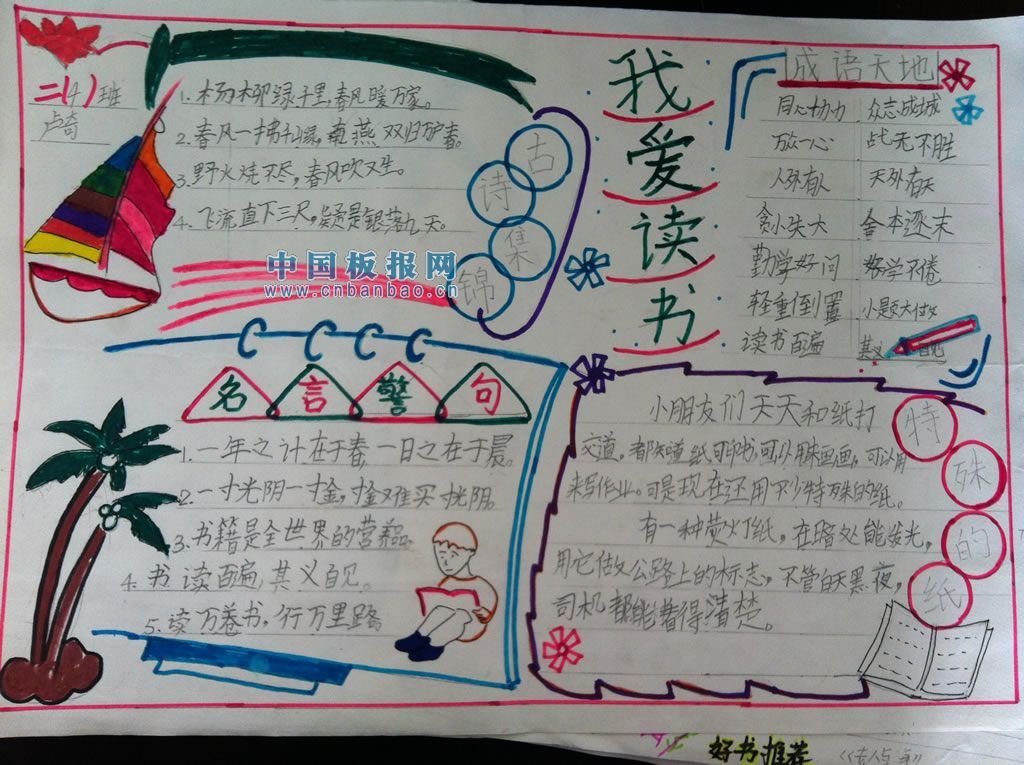 二(4)班
卢奇
1.杨柳绿千里,春风暖万家。
2.春风一拂千山绿,南燕双归万户春。
3.野火烧不尽,春风吹又生。
4.飞流直下三尺,疑是银落九天。
古
诗
集
锦
中国板报网
www.cnbanbao.cn
我
爱
读
书
成语天地
同心协力 众志成城
万众一心 战无不胜
人外有人 天外有天
贪小失大 舍本逐末
勤学好问 好学不倦
轻重倒置 小题大做
读书百遍 其义 自见
名言警句
1.一年之计在于春,一日之在于晨。
2.一寸光阴一寸金,寸金难买寸光阴。
3.书籍是全世界的营养品。
4.书读百遍,其义自见。
5.读万卷书,行万里路
特
殊
的
纸
小朋友们天天和纸打
交道,都知道纸可印书,可以用来画画,可以用
来写作业。可是现在还用不少特殊的纸。
有一种荧火灯纸,在暗处能发光,
用它做公路上的标志,不管白天黑夜,
司机都能看得清楚。
好书推荐